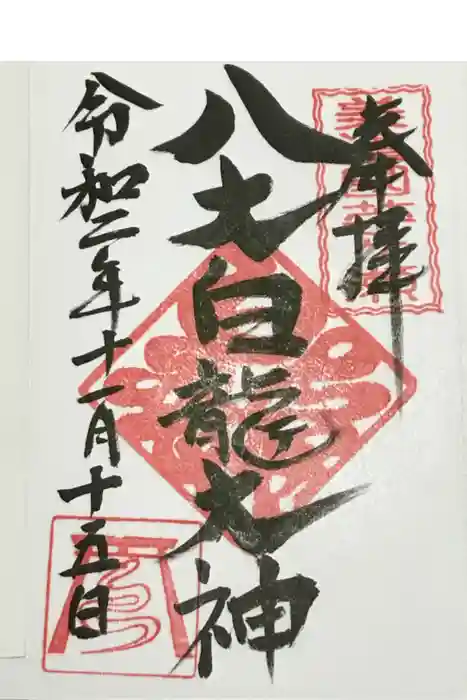 奉拝
八大白龍大神
令和二年十一月十五日